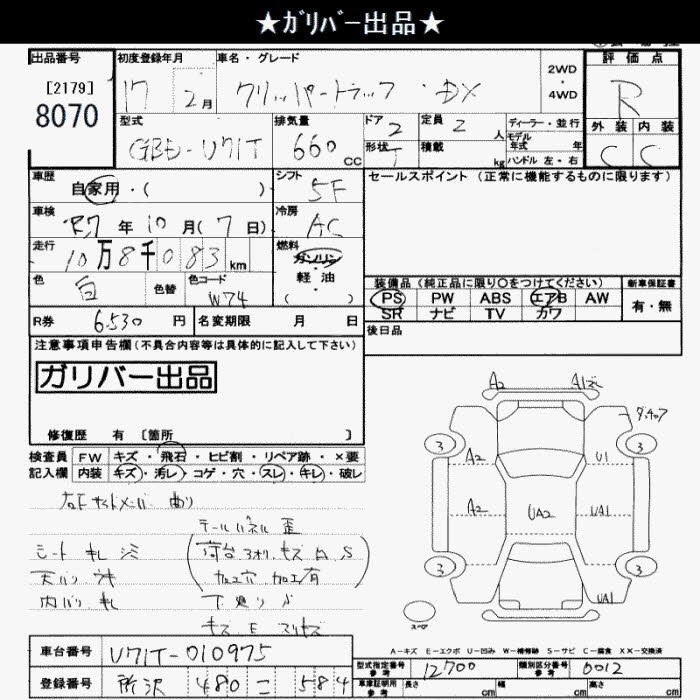 ★ガリバー出品★
出品番号 初度登録年月 車名・グレード 2WD・4WD 評価点
[2179] 8070 17 2月 クリッパートラック・DX R
型式 排気量 ドア 2 定員 2 人 ディーラー・並行 外装 内装
GBD-U71T 660 cc 形状 T 積載 kg モデル年式 年 ハンドル 左・右 C C
車歴 自家用・( ) シフト 5F セールスポイント (正常に機能するものに限ります)
車検 R7 年 10 月 (7 日) 冷房 AC
走行 10万8千083 km 燃料 ガソリン・軽油 ( )
色 白 色替 色コード W74
装備品 (純正品に限り○をつけてください) 新車保証書
PS PW ABS エアB AW 有・無
SR ナビ TV カワ
R券 6,530 円 名変期限 月 日 後日品
注意事項申告欄(不具合内容等は具体的に記入して下さい)
ガリバー出品
修復歴 有 [箇所 ]
検査員 FW キズ・飛石・ヒビ割・リペア跡・×要
記入欄 内装 キズ・汚レ・コゲ・穴・スレ・キレ・破レ
テールパネル 歪
シート キレ シミ
加工穴 加工有
A2
3 3
A2 U1
A2 UA2 UA1
3 3
UA1
スペア
A-キズ E-エクボ U-凹み W-補修跡 S-サビ C-腐食 XX-交換済
車台番号 U71T-010975
型式指定番号 参考 12700 類別区分番号 参考 0012
登録番号 所沢 480 こ 584
車庫証明用 参考 長さ cm 幅 cm 高さ cm